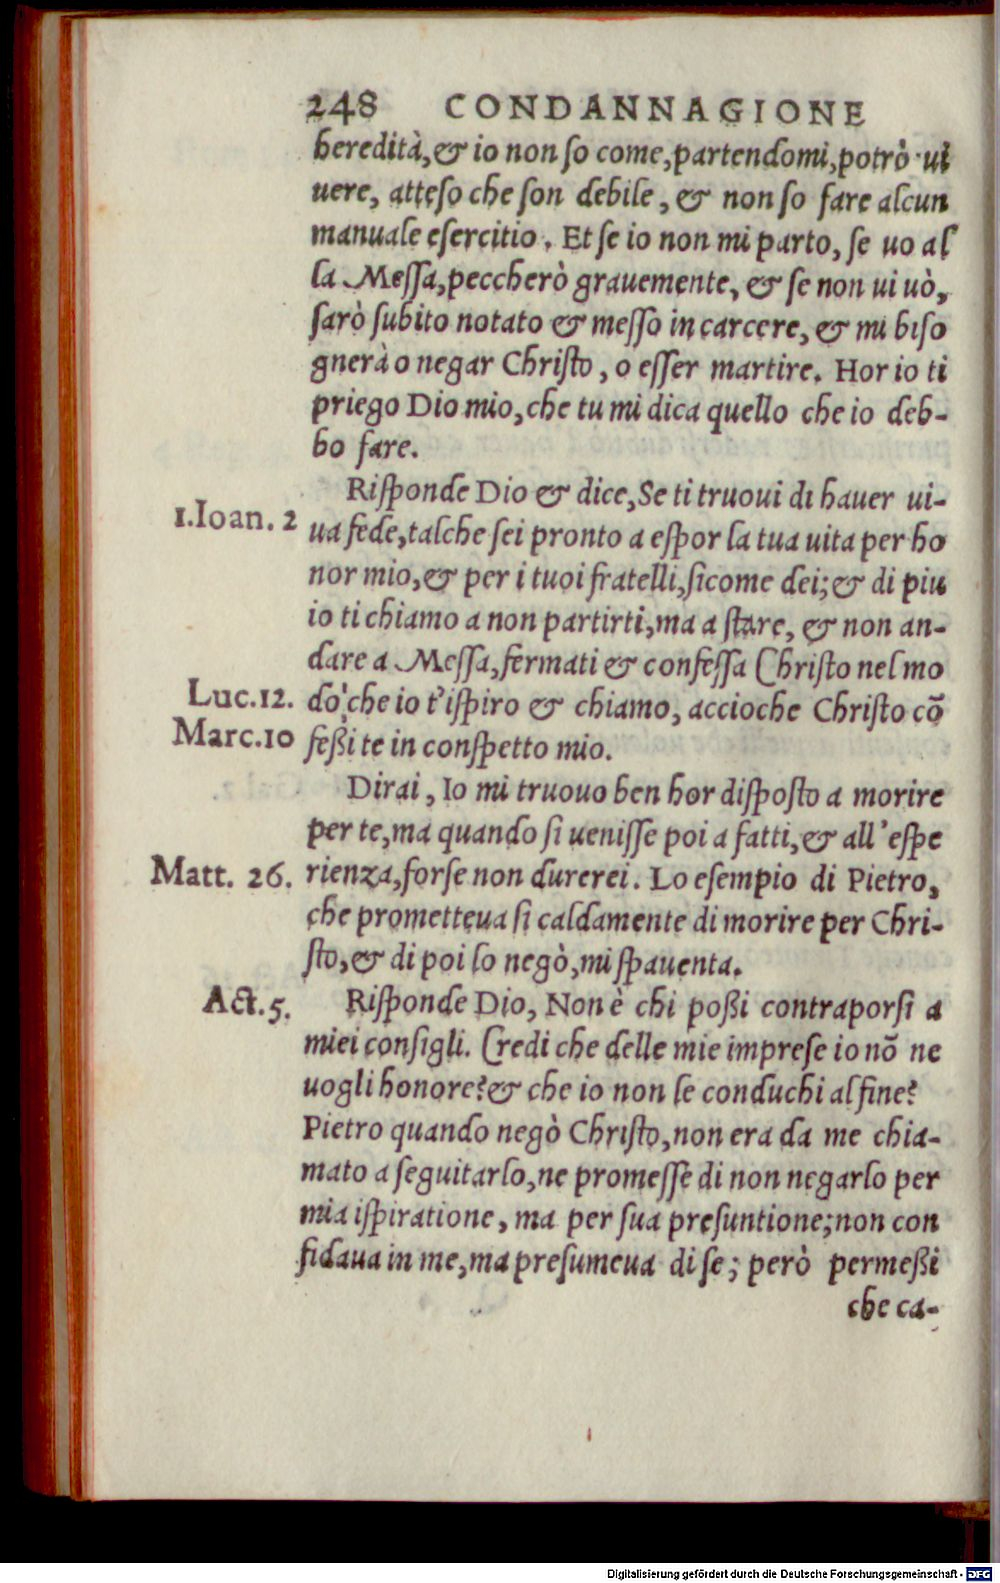 248 CONDANNAGIONE
heredità, & io non so come, partendomi, potrò ui
uere, atteso che son debile, & non so fare alcun
manuale esercitio. Et se io non mi parto, se uo al
la Messa, peccherò grauemente, & se non ui uò,
sarò subito notato & messo in carcere, & mi biso
gnerà o negar Christo, o esser martire. Hor io ti
priego Dio mio, che tu mi dica quello che io deb-
bo fare.
Risponde Dio & dice, Se ti truoui di hauer ui-
1.Ioan. 2
ua fede, talche sei pronto a espor la tua uita per ho
nor mio, & per i tuoi fratelli, sicome dei; & di piu
io ti chiamo a non partirti, ma a stare, & non an-
dare a Messa, fermati & confessa Christo nel mo
Luc.12.
do, che io t'ispiro & chiamo, accioche Christo cõ
Marc.10
feßi te in conspetto mio.
Dirai, Io mi truouo ben hor disposto a morire
per te, ma quando si uenisse poi a fatti, & all'espe
Matt. 26.
rienza, forse non durerei. Lo esempio di Pietro,
che prometteua si caldamente di morire per Chri-
sto, & di poi lo negò, mi spauenta.
Act.5.
Risponde Dio, Non è chi poßi contraporsi a
miei consigli. Credi che delle mie imprese io nõ ne
uogli honore? & che io non le conduchi al fine?
Pietro quando negò Christo, non era da me chia-
mato a seguitarlo, ne promesse di non negarlo per
mia ispiratione, ma per sua presuntione; non con
fidaua in me, ma presumeua di se; però permeßi
che ca-
Digitalisierung gefördert durch die Deutsche Forschungsgemeinschaft - DFG